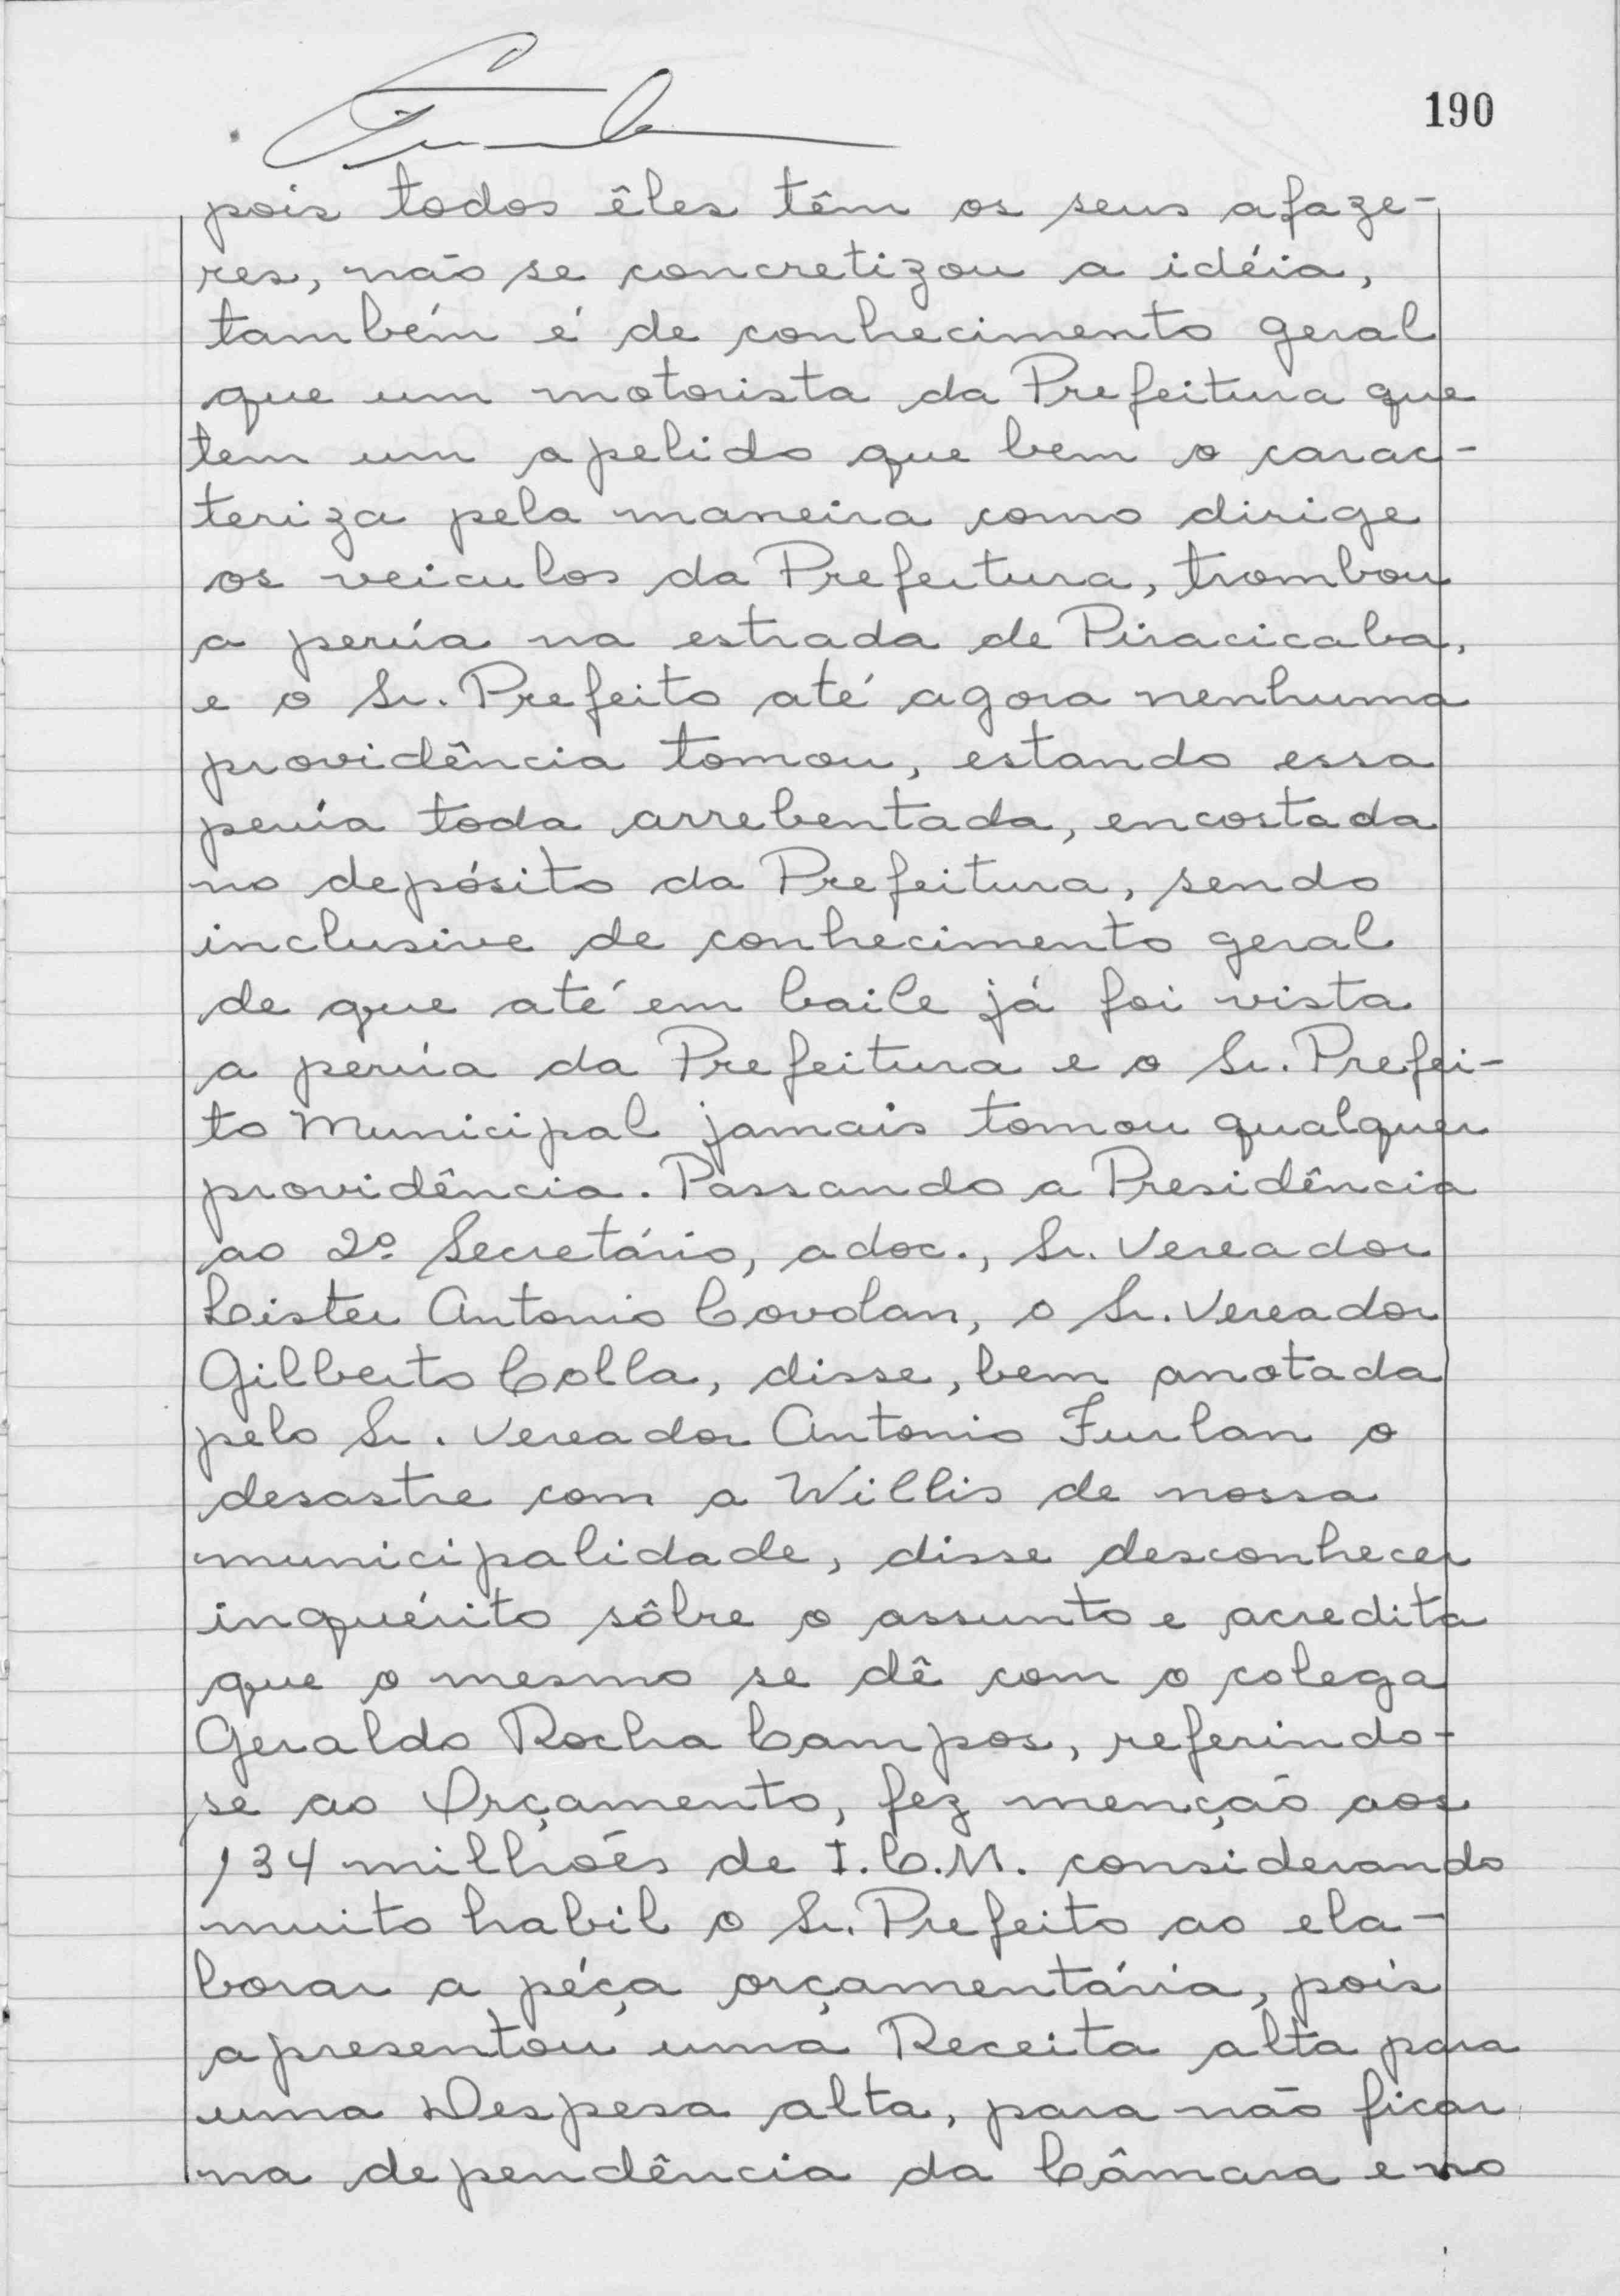 190
pois todos êles têm os seus afaze-
res, não se concretizou a idéia,
também é de conhecimento geral
que um motorista da Prefeitura que
tem um apelido que bem o carac-
teriza pela maneira como dirige
os veiculos da Prefeitura, trombou
a perúa na estrada de Piracicaba,
e o Sr. Prefeito até agora nenhuma
providência tomou, estando essa
perúa toda arrebentada, encostada
no depósito da Prefeitura, sendo
inclusive de conhecimento geral
de que até em baile já foi vista
a perúa da Prefeitura e o Sr. Prefei-
to Municipal jamais tomou qualquer
providência. Passando a Presidência
ao 2º Secretário, adoc., Sr. Vereador
Lister Antonio Covolan, o Sr. Vereador
Gilberto Colla, disse, bem anotada
pelo Sr. Vereador Antonio Furlan o
desastre com a Willis de nossa
municipalidade, disse desconhecer
inquérito sôbre o assunto e acredita
que o mesmo se dê com o colega
Geraldo Rocha Campos, referindo-
se ao Orçamento, fez menção aos
134 milhões de I.C.M. considerando
muito habil o Sr. Prefeito ao ela-
borar a péça orçamentária, pois
apresentou uma Receita alta para
uma Despesa alta, para não ficar
na dependência da Câmara e no